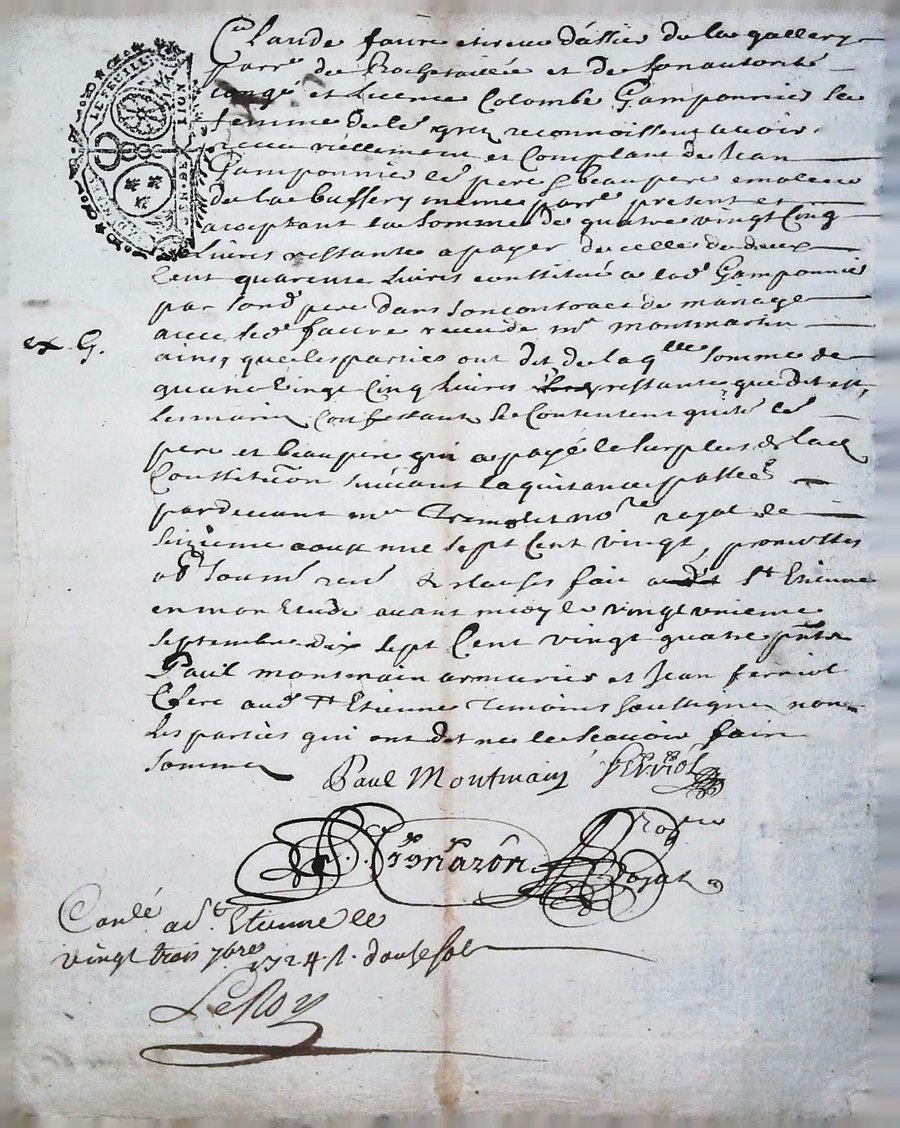 Claude faure tireur d'assier de la gallery
parr.e de Rochetaillée et de son autorité
congé et licence Colombe Gamponnier sa
femme de lé gré reconnoissent avoir
receu réellement et Comptant de Jean
Gamponnier lé pere & beaupere emoleur
de la buffery meme parr.e present et
acceptant la somme de quatre vingt Cinq
Livres restante a payer de celle de deux
Cent quarente Livres constitué a lad.e Gamponnier
par sond. pere dans son contract de mariage
avec led. faure receu de m.e montmartin
ex. G.
ainsy que les parties ont dit de laq.lle somme de
quatre vingt Cinq livres restante que dit est,
les mariés Confessant se Contentent quité lé
pere et beaupere qui a payé le surplus de lad.
Constitution suivant la quitance passée
pardevant m.e no.re royal le
sixieme aoux mil sept Cent vingt, promettes
obl. soum. ren. & clauses fait a St Etienne
en mon Etude avant midy le vingt unieme
septembre dix sept Cent vingt quatre pñts
Paul montmain armurier et Jean ferriol
Clerc aud. St Etienne Temoins soussignes non
les parties qui ont dit ne le scavoir fair
sommés
Paul Montmain ferriol
Rogat
Conlé a St. Etienne le
vingt trois 7bre 1724. r. douse sols
LeRoy
LE FEUILLE
LION
GEN. DE